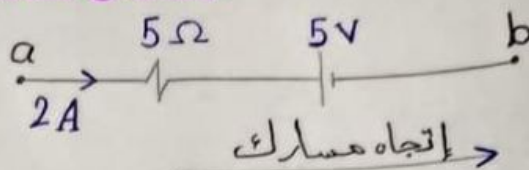 5Ω 5V
a b
2A
إتجاه مسارك